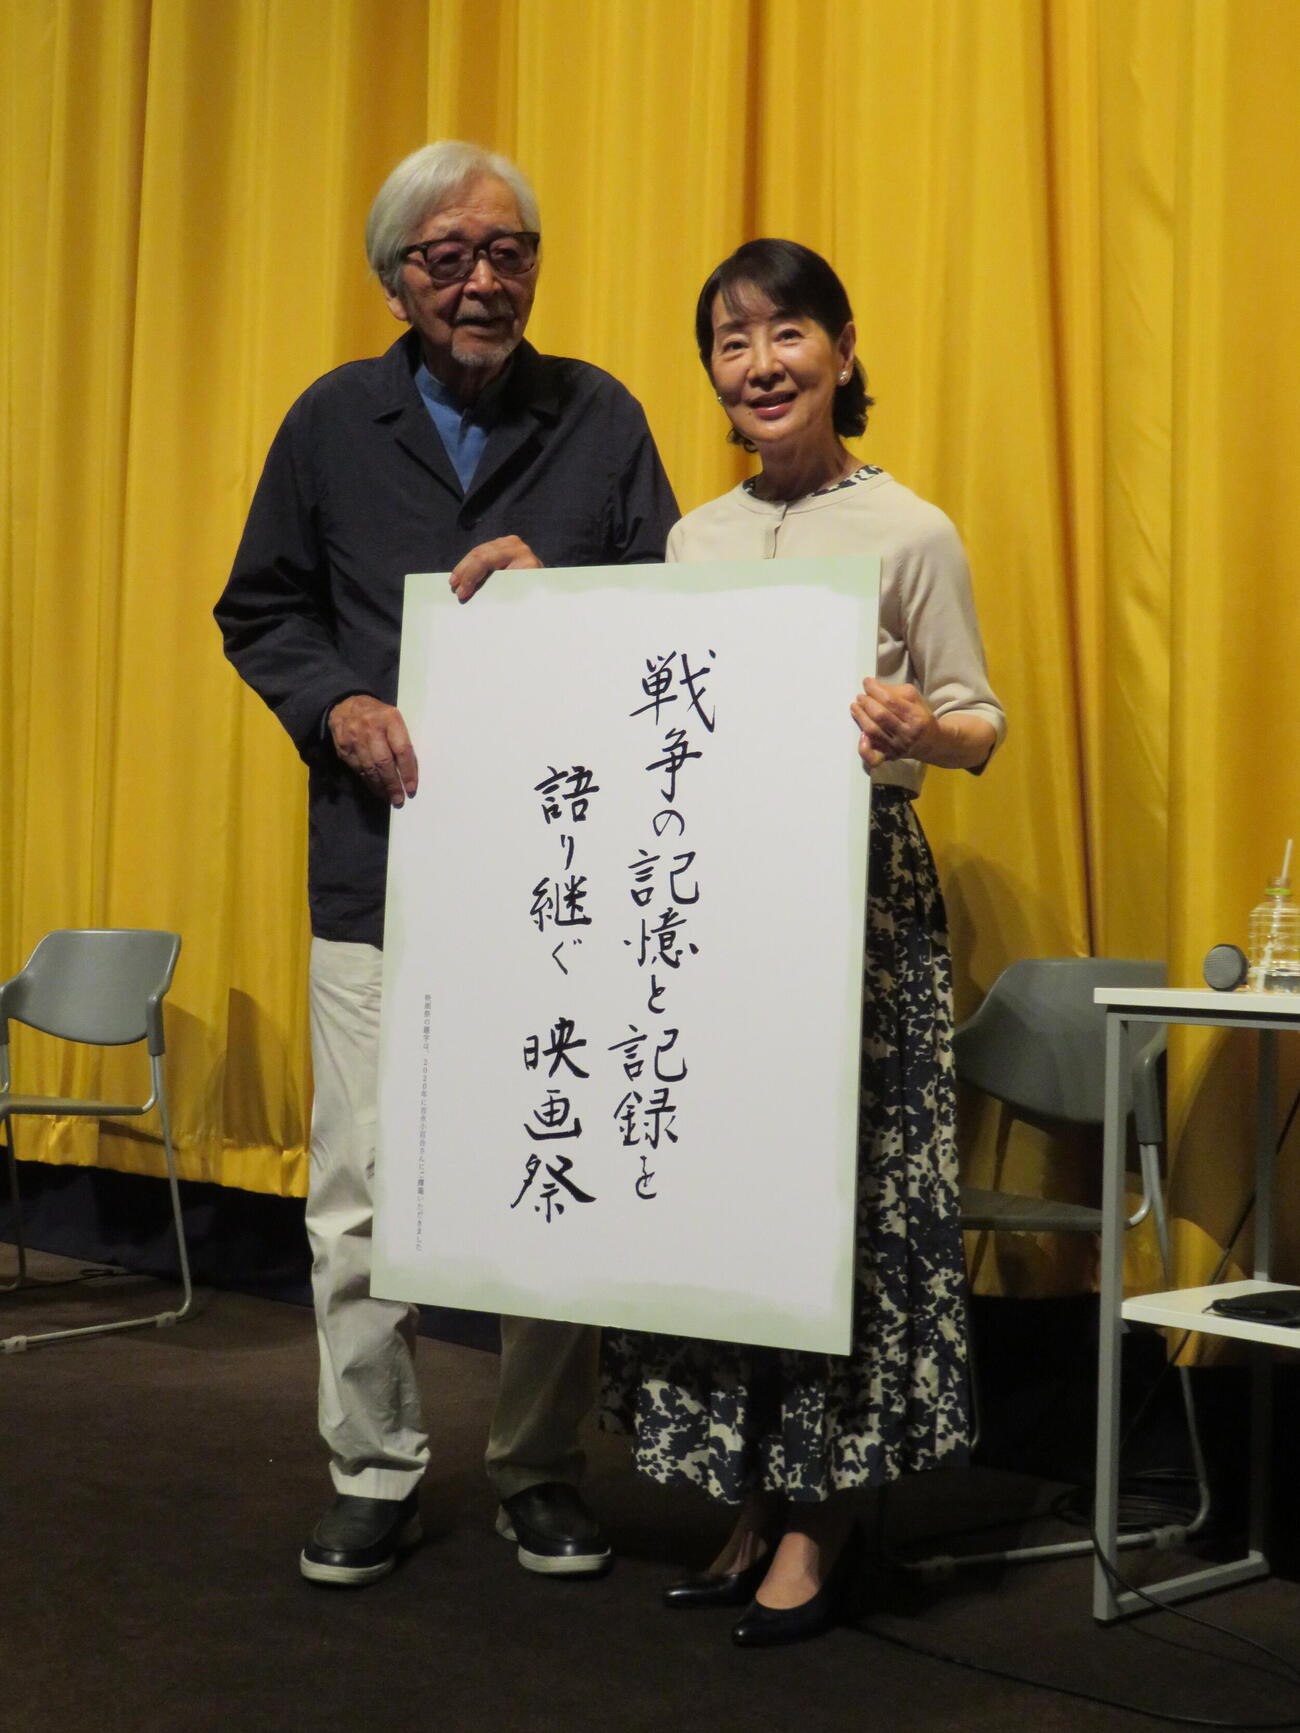 戦争の記憶と記録を
語り継ぐ 映画祭
映画祭の題字は、2020年に吉永小百合さんにご揮毫いただきました